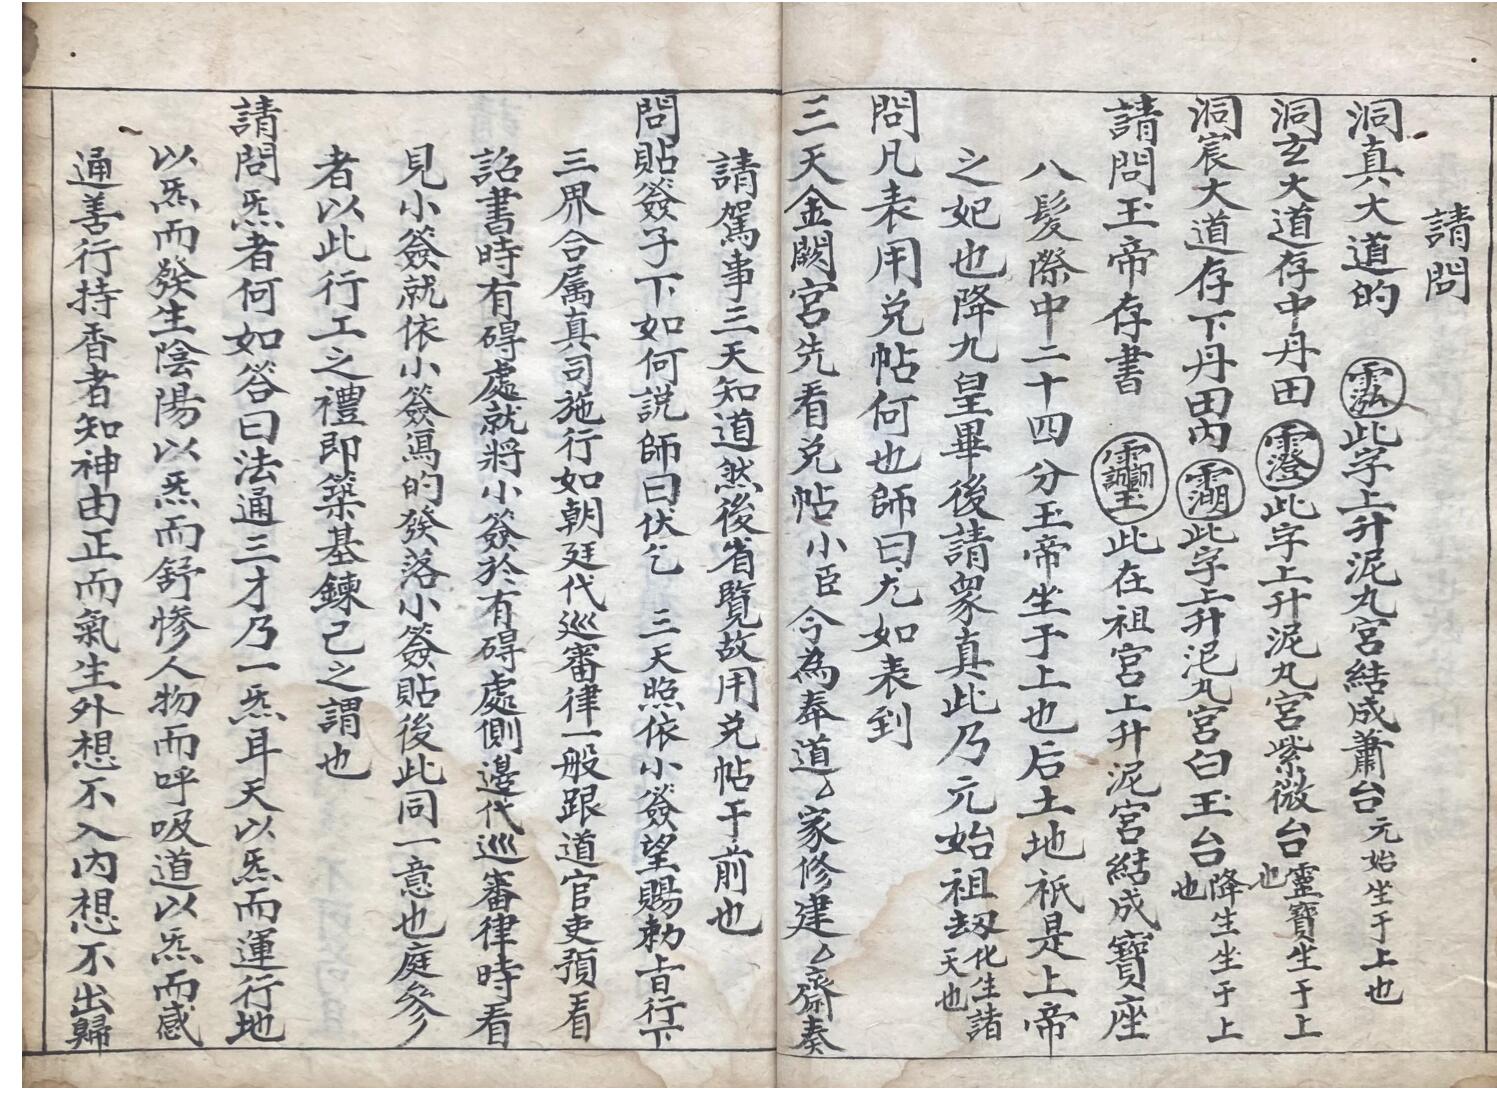 請問
洞真大道的 此字上升泥丸宮結成蕭台元始坐于上也
洞玄大道存中丹田 此字上升泥丸宮紫微台靈寶生于上也
洞宸大道存下丹田內 此字上升泥丸宮白玉台降生坐于上也
請問玉帝存書 此在祖宮上升泥宮結成寶座
八髮際中二十四分玉帝坐于上也后土地祇是上帝
之妃也降九皇畢後請衆真此乃元始祖刼化生諸天也
問凡表用兑帖何也師曰凢如表到
三天金闕宮先看兑帖小臣今為奉道厶家修建厶齋奏
請駕事三天知道然後省覧故用兑帖于前也
問貼簽子下如何説師曰伏乞 三天照依小簽望賜勅旨行下
三界合属真司施行如朝廷代巡審律一般跟道官吏預看
詔書時有碍處就將小簽於有碍處側邊代巡審律時看
見小簽就依小簽寫的發落小簽貼後此同一意也庭參
者以此行工之禮即築基鍊己之謂也
請問炁者何如答曰法通三才乃一炁耳天以炁而運行地
以炁而發生陰陽以炁而舒慘人物而呼吸道以炁而感
通善行持香者知神由正而氣生外想不入内想不出歸